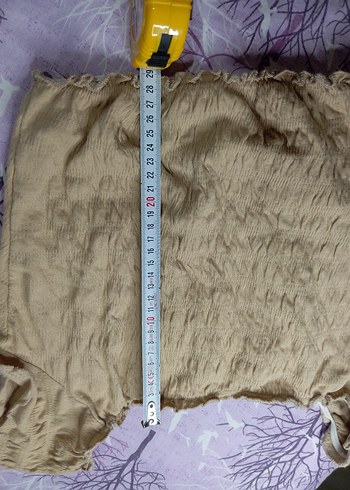 29
28
27
26
25
24
23
22
21
20
19
18
17
16
15
14
13
12
11
10
9
8
7
6
5